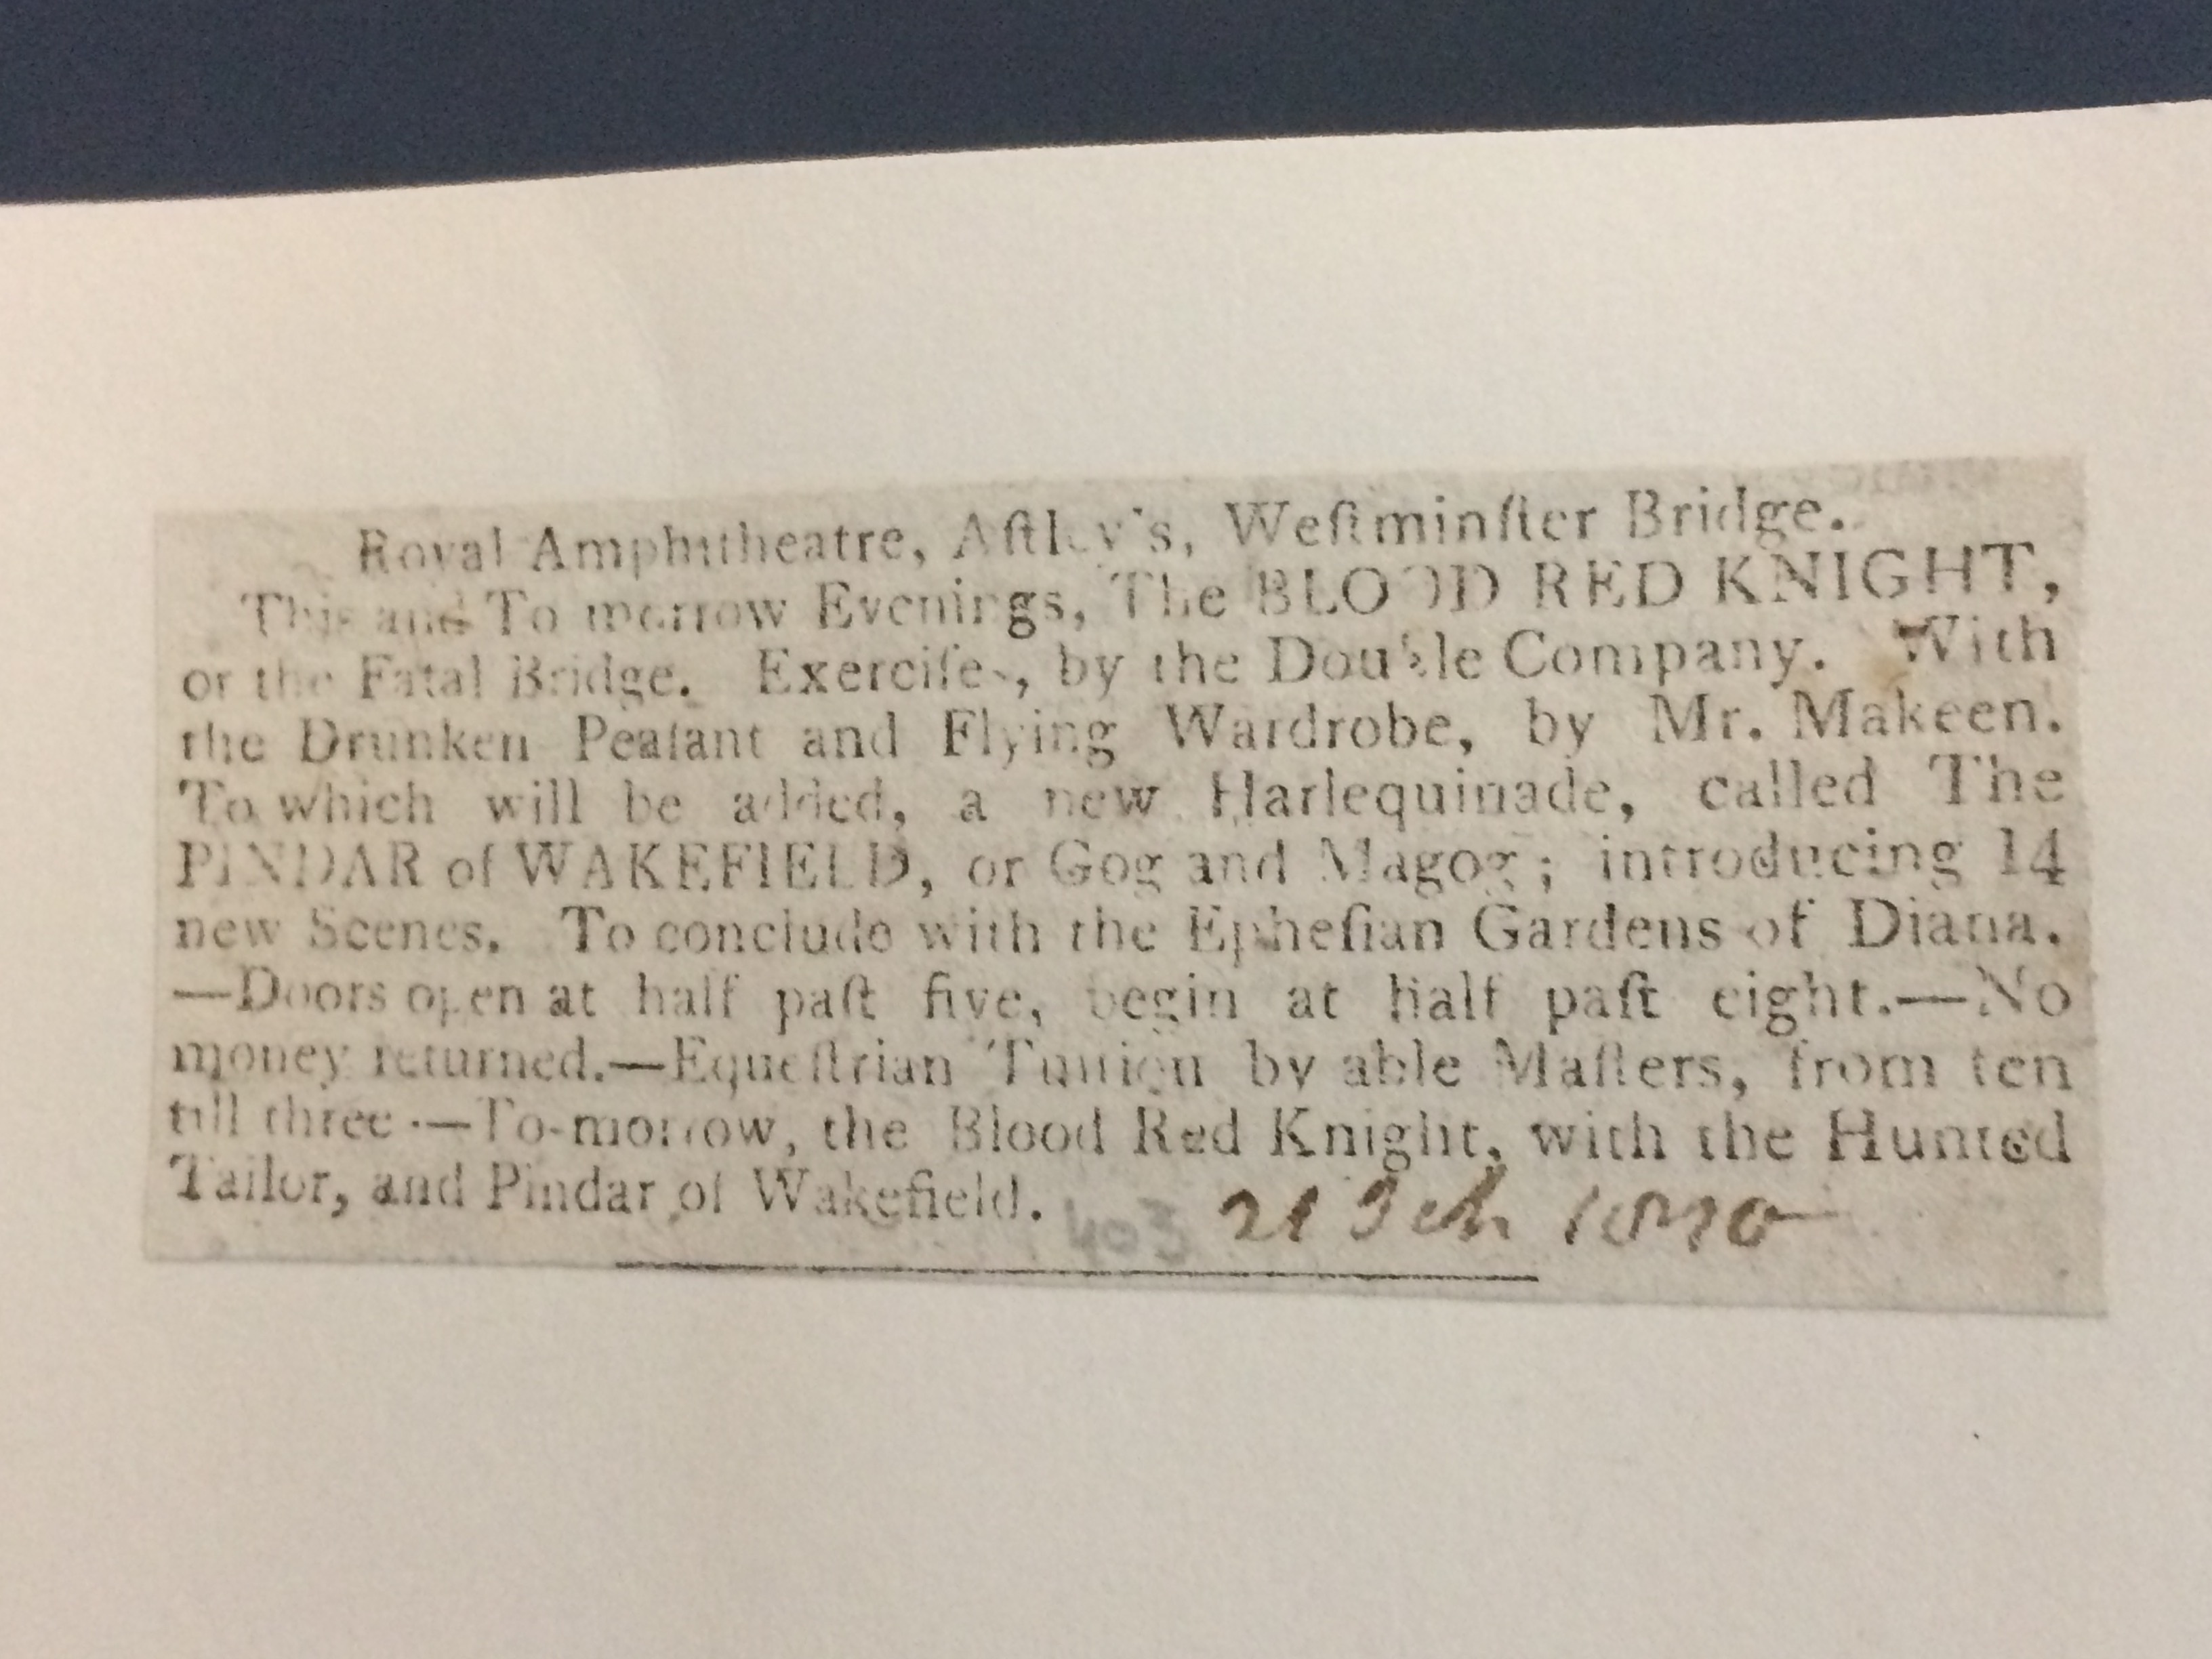 Royal Amphitheatre, Aſtley's, Weſtminſter Bridge.
This and To morrow Evenings, The BLOOD RED KNIGHT,
or the Fatal Bridge. Exerciſes, by the Double Company. With
the Drunken Peaſant and Flying Wardrobe, by Mr. Makeen.
To which will be added, a new Harlequinade, called The
PINDAR of WAKEFIELD, or Gog and Magog; introducing 14
new Scenes. To conclude with the Epheſian Gardens of Diana.
—Doors open at half paſt five, begin at half paſt eight.—No
money returned.—Equeſtrian Tuition by able Maſters, from ten
till three.—To-morrow, the Blood Red Knight, with the Hunted
Tailor, and Pindar of Wakefield. 403 21